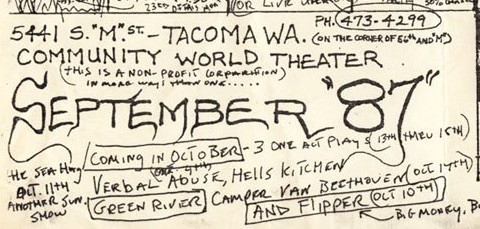 23RD DETAILS AT
(OR LIVE
PH. 473-4299
5441 S. "M" ST. - TACOMA WA. (ON THE CORNER OF 56TH AND "M")
COMMUNITY WORLD THEATER
(THIS IS A NON-PROFIT CORPORATION)
IN MORE WAYS THAN ONE.....
SEPTEMBER "87"
COMING IN OCTOBER - 3 ONE ACT PLAYS (13TH THRU 15TH)
VERBAL ABUSE, HELLS KITCHEN (OCT 17TH)
GREEN RIVER CAMPER VAN BEETHOVEN
AND FLIPPER (OCT 10TH)
BIG MONEY,
THE SEA HAG
OCT. 11TH
ANOTHER SUN.
SHOW